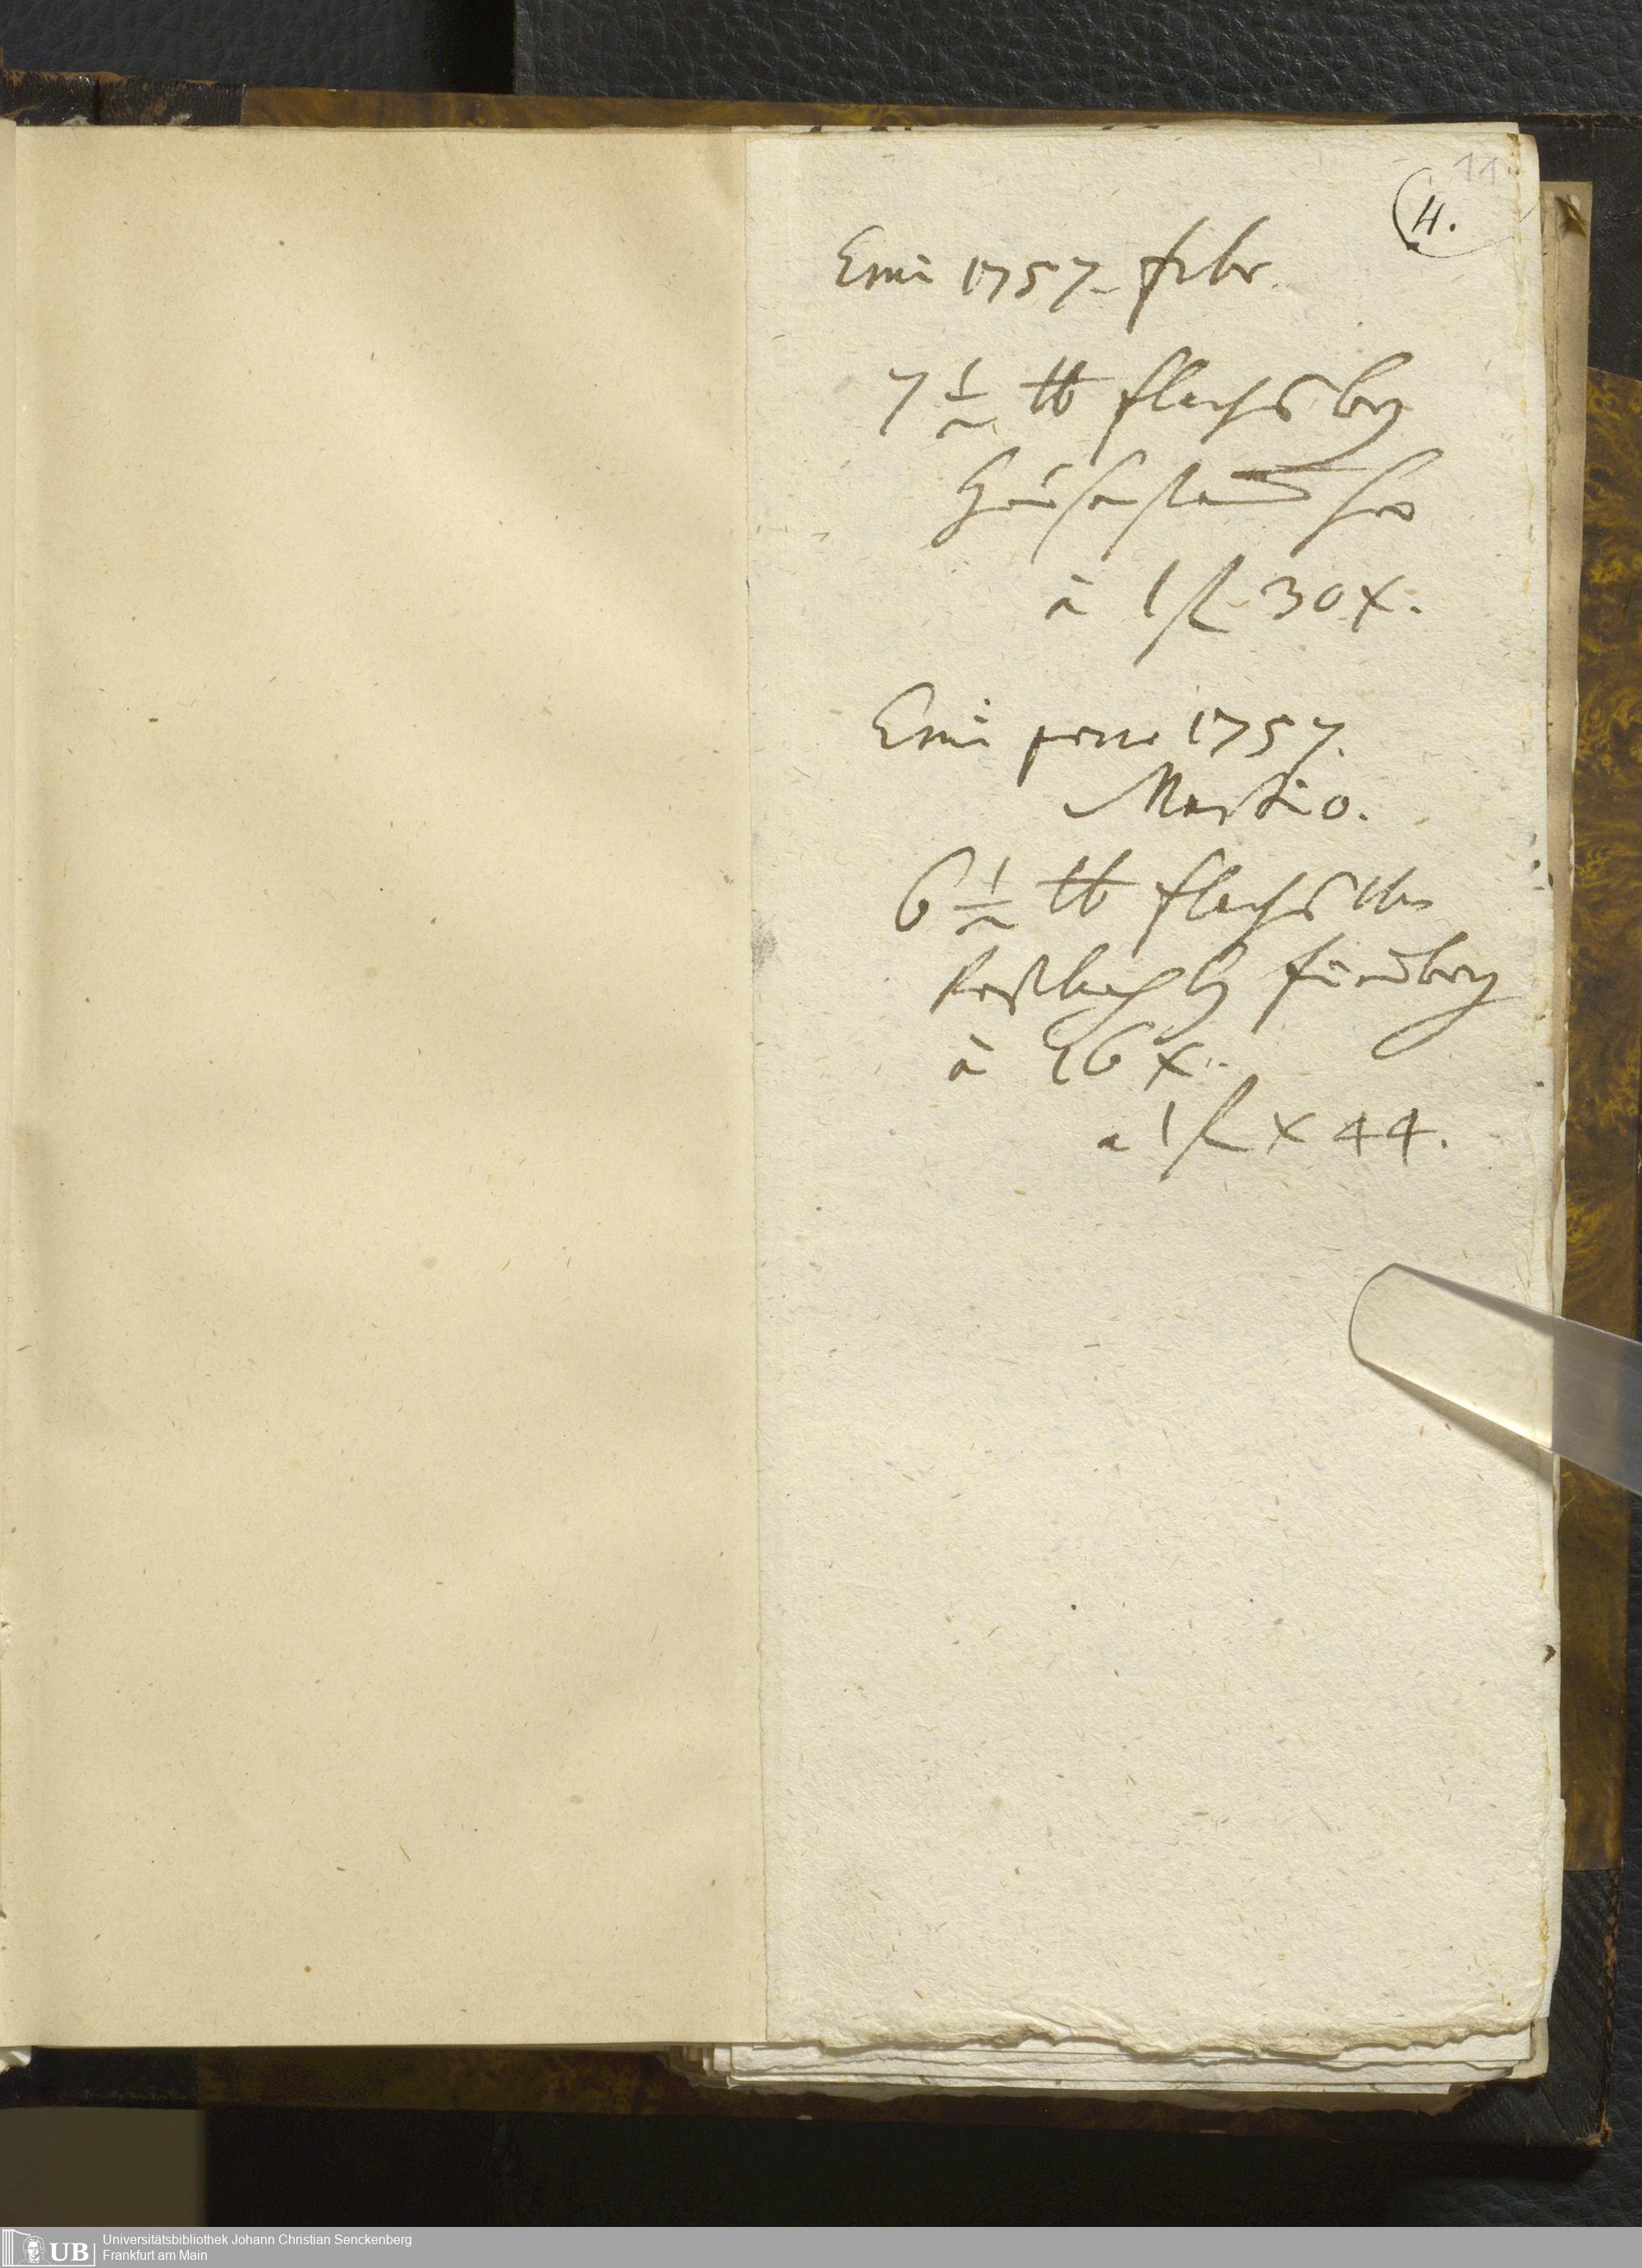 11
4.
Emi 1757. febr.
7 1/2 ℔ flachs bey
à 1 fl 30 x.
Emi porro 1757.
Martio.
6 1/2 ℔ flachs
à 16 x.
a 1 fl x 44.
UB Universitätsbibliothek Johann Christian Senckenberg
Frankfurt am Main